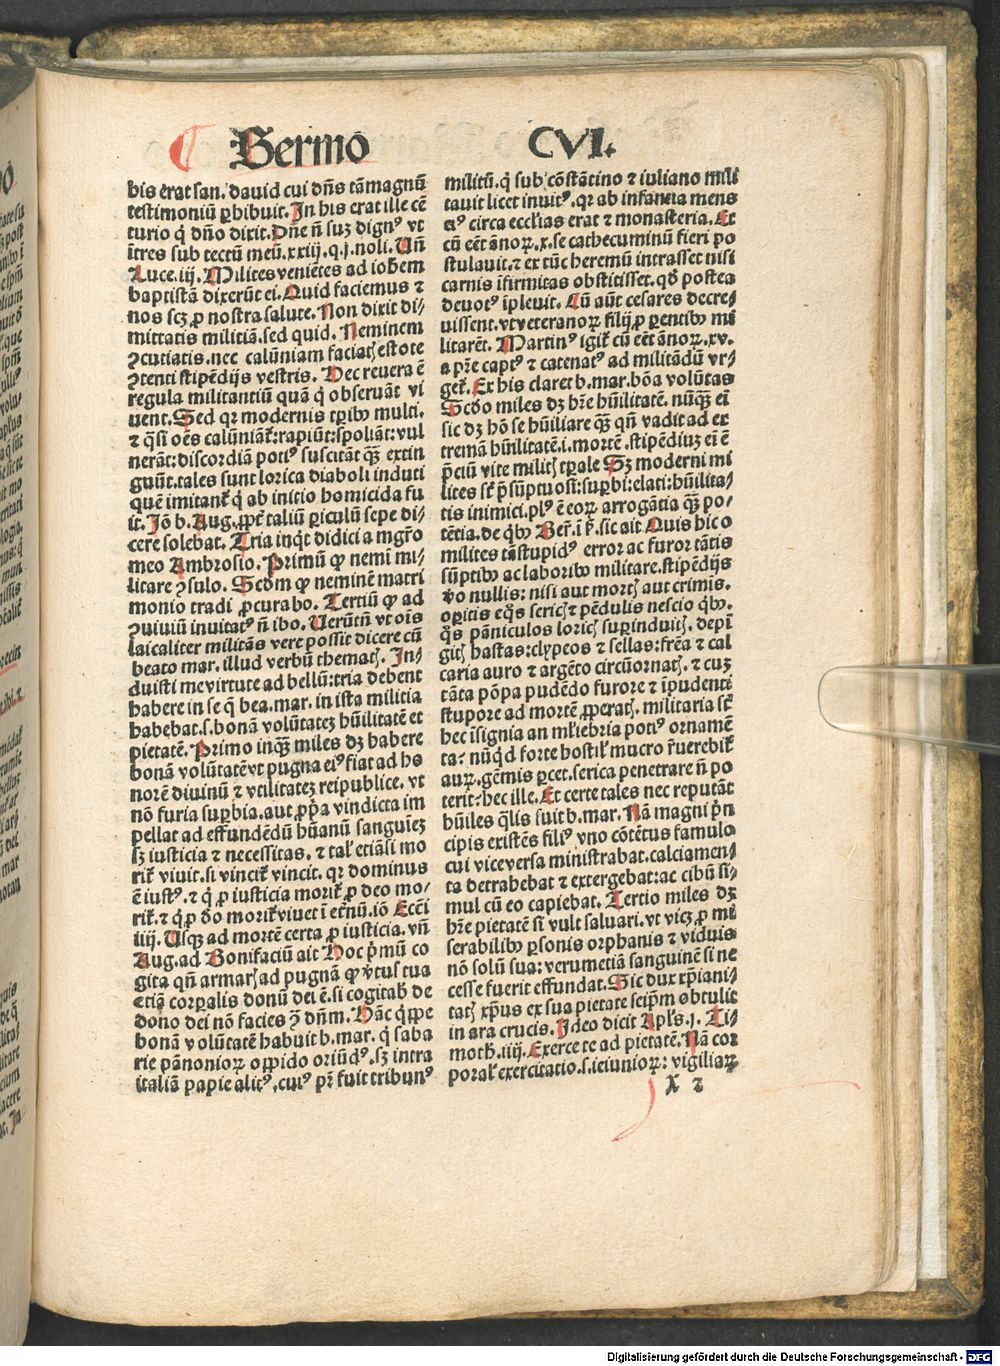 ¶ Sermo CVI.
bis erat san. dauid cui dn̄s tā magnū
testimoniū ꝑhibuit. In his erat ille cē
turio q̇ dn̄o dixit. Dn̄e nō sum dignꝰ vt
ītres sub tectū meū. xxiij. q. j. noli. Un̄
Luce. iij. Milites veniētes ad iohēm
baptistā dixerūt ei. Quid faciemus ⁊
nos scꝫ ꝓ nostra salute. Non dixit di⸗
mittatis militiā. sed quid. Neminem
ꝯcutiatis. nec calūniam faciatꝭ estote
ꝯtenti stipēdijs vestris. Hec reuera ē
regula militantiū quā q̇ obseruāt vi
uent. Sed qꝛ modernis tꝑibꝰ multi.
⁊ q̄si oēs calūniāt᷑: rapiūt: spoliāt: vul
nerāt: discordiā potiꝰ suscitāt qꝫ̄ extin
guūt. tales sunt lorica diaboli induti
quē imitant᷑ q̇ ab initio homicida fu
it. Jō b. Aug. ꝓpt̄ taliū ꝑiculū sepe di⸗
cere solebat. Tria inqͥt didici a mgr̄o
meo Ambrosio. Primū ꝙ nemī mi⸗
litare ꝯsulo. Scdm̄ ꝙ neminē matri
monio tradi ꝓcurabo. Tertiū ꝙ ad
ꝯuiuiū inuitatꝰ nō ibo. Uerūtn̄ vt oīs
laicaliter militās vere possit dicere cū
beato mar. illud verbū thematꝭ. In⸗
duisti me virtute ad bellū: tria debent
habere in se q̄ bea. mar. in ista militia
habebat. s. bonā volūtatē hūilitatē et
pietatē. Primo inqꝫ̄ miles dꝫ habere
bonā volūtatē vt pugna eiꝰ fiat ad ho
norē diuinū ⁊ vtilitatē reipublice. vt
nō furia suꝑbia. aut ꝓpͥa vindicta im
pellat ad effundēdū hūanū sanguīeꝫ
sꝫ iusticia ⁊ necessitas. ⁊ tal᷑ etiāsi mo
rit᷑ viuit. si vincit᷑ vincit. qꝛ dominus
ē iustꝰ. ⁊ q̇ ꝓ iusticia morit᷑ ꝓ deo mo⸗
rit᷑. ⁊ q̇ ꝓ deo morit᷑ viuet ī et̄nū. iō Ecc̄i
iiij. Usqꝫ ad mortē certa ꝓ iusticia. vn̄
Aug. ad Bonifaciū ait Hoc pͥmū co
gita qn̄ armarꝭ ad pugnā ꝙ vͥtus tua
etiā corꝑalis donū dei ē. si cogitabꝭ de
dono dei nō facies ꝯ dn̄m. Hāc q̇ppe
bonā volūtatē habuit b. mar. q̇ saba
rie pānonioꝝ oppido oriūdꝰ. sꝫ intra
italiā papie alitꝰ, cuiꝰ pr̄ fuit tribunꝰ
militū. q̇ sub cōstātino ⁊ iuliano mili
tauit licet inuitꝰ. qꝛ ab infantia mens
eiꝰ circa eccl̄ias erat ⁊ monasteria. Et
cū eēt ānoꝝ. x. se cathecuminū fieri po
stulauit. ⁊ ex tūc heremū intrasset nisi
carnis īfirmitas obstitisset. qd̄ postea
deuotꝰ īpleuit. Cū aūt cesares decre⸗
uissent. vt veteranoꝝ filij ꝓ ꝑentibꝰ mi
litarēt. Martinꝰ igit᷑ cū eēt ānoꝝ. xv.
a pr̄e captꝰ ⁊ catenatꝰ ad militādū vr⸗
get᷑. Ex his claret b. mar. bōa volūtas
Scd̄o miles dꝫ hr̄e hūilitatē. nūqꝫ̄ eī
sic dꝫ hō se hūiliare qꝫ̄ qn̄ vadit ad ex
tremā hūilitatē. i. mortē. stipēdiuꝫ eī ē
p̄ciū vite militꝭ tꝑale Sꝫ moderni mi
lites st̄ p̄sūptuosi: suꝑbi: elati: hūilita⸗
tis inimici. plꝰ ē eoꝝ arrogātia qꝫ̄ po⸗
tētia. de qͥbꝰ Ber̄. ī ẜ. sic ait Quis hic o
milites tā stupidꝰ error ac furor tātis
sūptibꝰ ac laboribꝰ militare. stipēdijs
ꝟo nullis: nisi aut mortꝭ aut crimīs.
oꝑitis eq̇s sericꝭ ⁊ pēdulis nescio qͥbꝰ.
q̇s pāniculos loricꝭ suꝑinduitꝭ. depī
gitꝭ hastas: clypeos ⁊ sellas: frēa ⁊ cal
caria auro ⁊ argēto circūornatꝭ. ⁊ cuꝫ
tāta pōpa pudēdo furore ⁊ īpudenti
stupore ad mortē ꝓꝑatꝭ. militaria st̄
hec īsignia an ml̄iebria potiꝰ ornamē
ta? nūqͥd forte hostil᷑ mucro r̄uerebit᷑
auꝝ. gēmis ꝑcet. serica penetrare nō po
terit: hec ille. Et certe tales nec reputāt
hūiles q̄lis fuit b. mar. Nā magni pͥn
cipis existēs filiꝰ vno cōtētus famulo
cui viceversa ministrabat. calciamen⸗
ta detrahebat ⁊ extergebat: ac cibū si⸗
mul cū eo capiebat. Tertio miles dꝫ
hr̄e pietatē si vult saluari. vt vicꝫ ꝓ mi
serabilibꝰ ꝑsonis orphanis ⁊ viduis
nō solū sua: verumetiā sanguinē si ne
cesse fuerit effundat. Sic dux xp̄iani⸗
tatꝭ xp̄us ex sua pietate seip̄m obtulit
in ara crucis. Ideo dicit Apl̄s. j. Ti⸗
moth. iiij. Exerce te ad pietatē. Nā cor
poral᷑ exercitatio. s. ieiunioꝝ: vigiliaꝝ
X 2
Digitalisierung gefördert durch die Deutsche Forschungsgemeinschaft - DFG